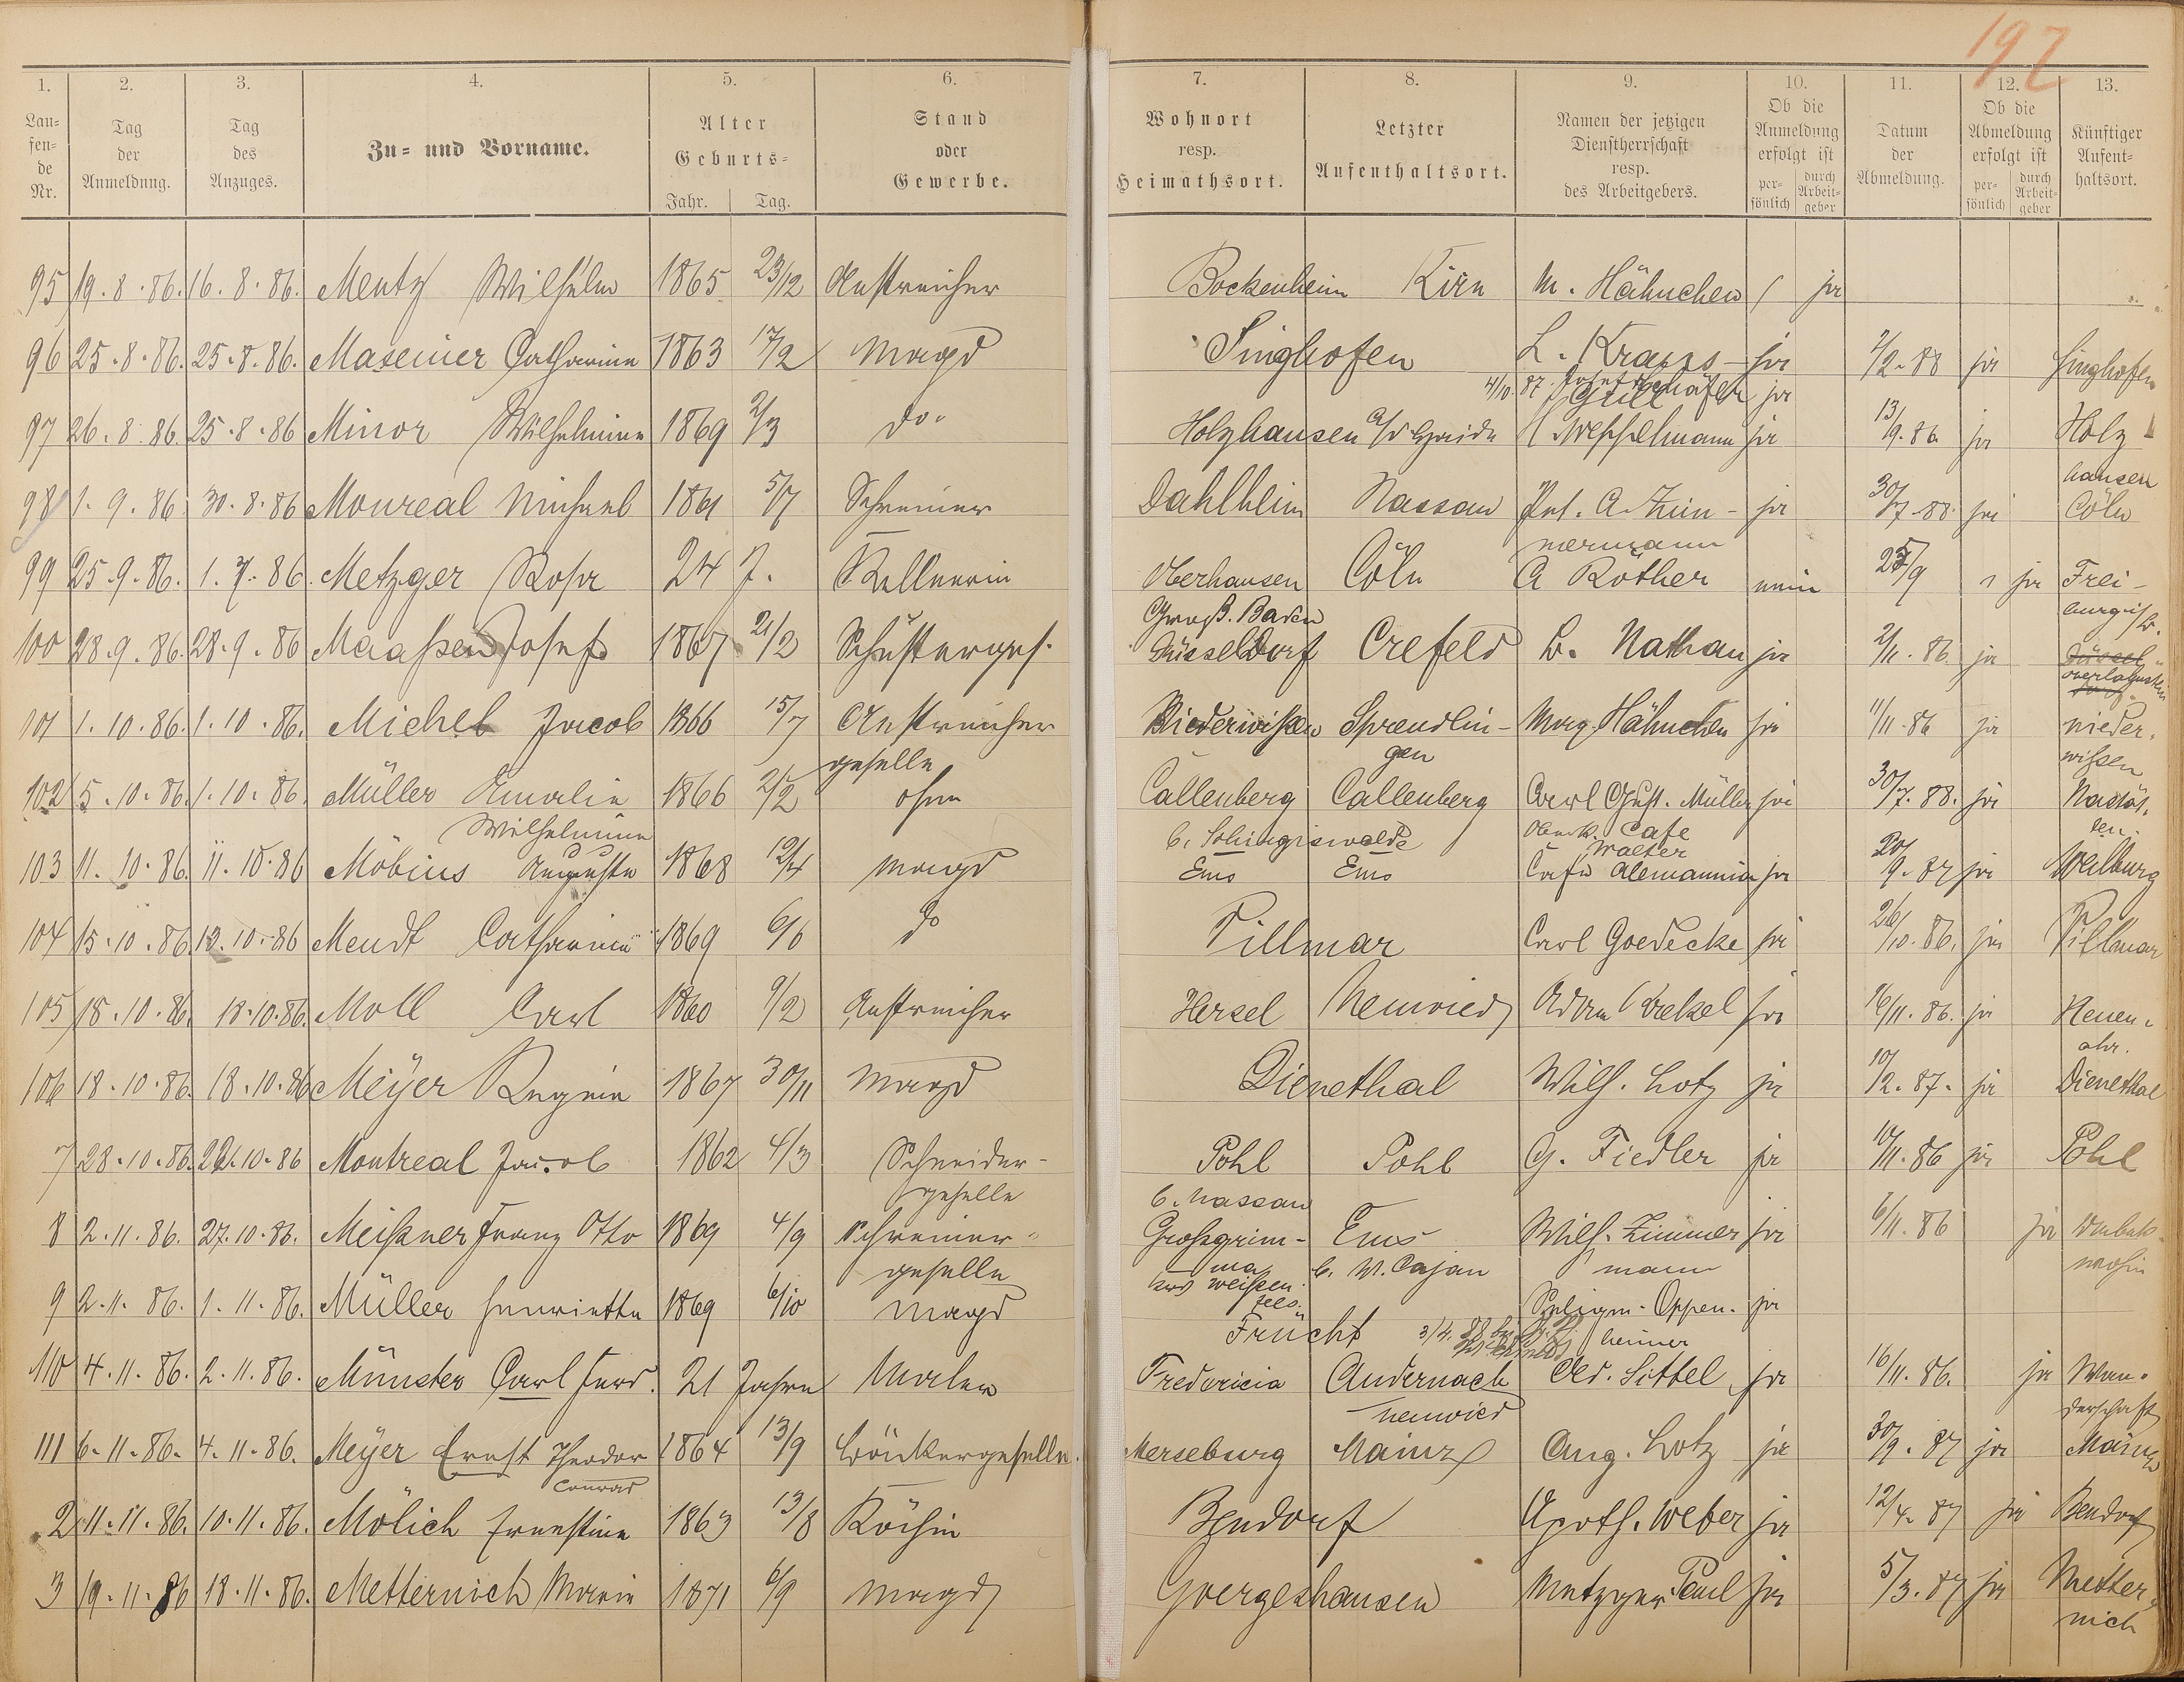 197
1. 2. 3. 4. 5. 6. 7. 8. 9. 10. 11. 12. 13.
Lau-fen-de Nr. Tag der Anmeldung. Tag des Anzuges. Zu- und Vorname. Alter Geburts- Jahr. Tag. Stand oder Gewerbe. Wohnort resp. Heimathsort. Letzter Aufenthaltsort. Namen der jetzigen Dienstherrschaft resp. des Arbeitgebers. Ob die Anmeldung erfolgt ist per-sönlich durch Arbeit-geber Datum der Abmeldung. Ob die Abmeldung erfolgt ist per-sönlich durch Arbeit-geber Künftiger Aufent-haltsort.
95 19.8.86. 16.8.86. Mentz Wilhelm 1865 23/12 Anstreicher Bockenheim Kirn M. Hähnchen ja
96 25.8.86. 25.8.86. Maseiner Catharina 1863 17/2 Magd Singhofen L. Kraps ja 7/2.88 ja Singhofen
4/10.87. Schäfer ja
97 26.8.86. 25.8.86 Minor Wilhelmine 1869 2/3 do. Holzhausen a/d Haide ja 13/9.86 ja Holz
hausen
98 1.9.86 30.8.86 Moureal Michael 1861 5/7 Schreiner Dahlheim Nassau Pet. A. Zim- ja 30/7.88. ja Cöln
mermann
99 25.9.86. 1.7.86. Metzger Rosa 24 J. Kellnerin Oberhausen Cöln A Röther nein 25/9 ja Frei-
Groß. Baden burg i/B.
100 28.9.86. 28.9.86 Maaßen Josef 1867 21/2 Schusterges. Düsseldorf Crefeld B. Nathan ja 2/11.86. ja Düssel
oberlahnstein
101 1.10.86. 1.10.86. Michel Jacob 1866 15/7 Anstreicher Niederwißen Sprendlin- Marg. Hähnchen ja 11/11.86 ja nieder.
geselle gen wißen
102 5.10.86. 1.10.86. Müller Amalie 1866 2/2 ohne Callenberg Callenberg Carl Gust. Müller ja 30/7.88. ja Nastät.
Wilhelmine Cafe ten.
Walter
103 11.10.86. 11.10.86 Möbius Auguste 1868 12/4 Magd Ems Ems Café Alemannia ja 20/9.87 ja Weilburg
104 15.10.86. 12.10.86 Mendt Catharina 1869 6/6 do Villmar Carl Goedecke ja 26/10.86. ja Villmar
105 18.10.86. 18.10.86. Moll Carl 1860 9/2 Anstreicher Hersel Neuwied Adam ja 16/11.86. ja Neuen-
ahr.
106 18.10.86. 18.10.86 Meÿer Regine 1867 30/11 Magd Dienethal Wilh. Lotz ja 10/2.87. ja Dienethal
7 28.10.86. 22.10.86 Montreal Jacob 1862 4/3 Schneider- Pohl Pohl G. Fiedler ja 10/11.86 ja Pohl
geselle b. Nassau
8 2.11.86. 27.10.86. Meißner Franz Otto 1869 4/9 Schreiner- Großgrim- Ems Wilh. Zimmer ja 6/11.86 ja Unbek.
geselle ma b. W. Cajan mann wohin
weißen
fels.
9 2.11.86. 1.11.86. Müller Henriette 1869 6/10 Magd Frücht Seligm. Oppen- ja
3/4.88 heimer
110 4.11.86. 2.11.86. Münster Carl Ferd. 21 Jahre Maler Fredericia Andernach Ad. Sittel ja 16/11.86. ja Wan-
neuwied derschaft
111 6.11.86. 4.11.86. Meÿer Ernst Theodor 1864 13/9 Bäckergeselle. Merseburg Mainz Aug. Lotz ja 30/9.87 ja Mainz
Conrad
2 11.11.86. 10.11.86. Mölich Ernestine 1863 13/8 Köchin Bendorf Apoth. Weber ja 12/4.87 ja Bendorf
3 19.11.86 18.11.86. Metternich Maria 1871 6/9 Magd Goergeshausen Metzger Paul ja 5/3.87 ja Metter
nich